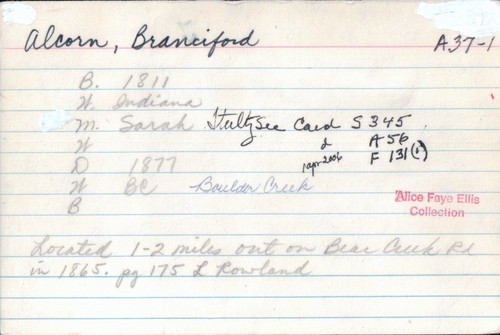 Alcorn, Branciford A37-1
B. 1811
W. Indiana
M. Sarah Stultz See Card S 345
W d A 56
D 1877 1 apr 2006 F 131(1)
W BC Boulder Creek
B
Alice Faye Ellis
Collection
Located 1-2 miles out on Bear Creek Rd
in 1865. pg 175 L Rowland